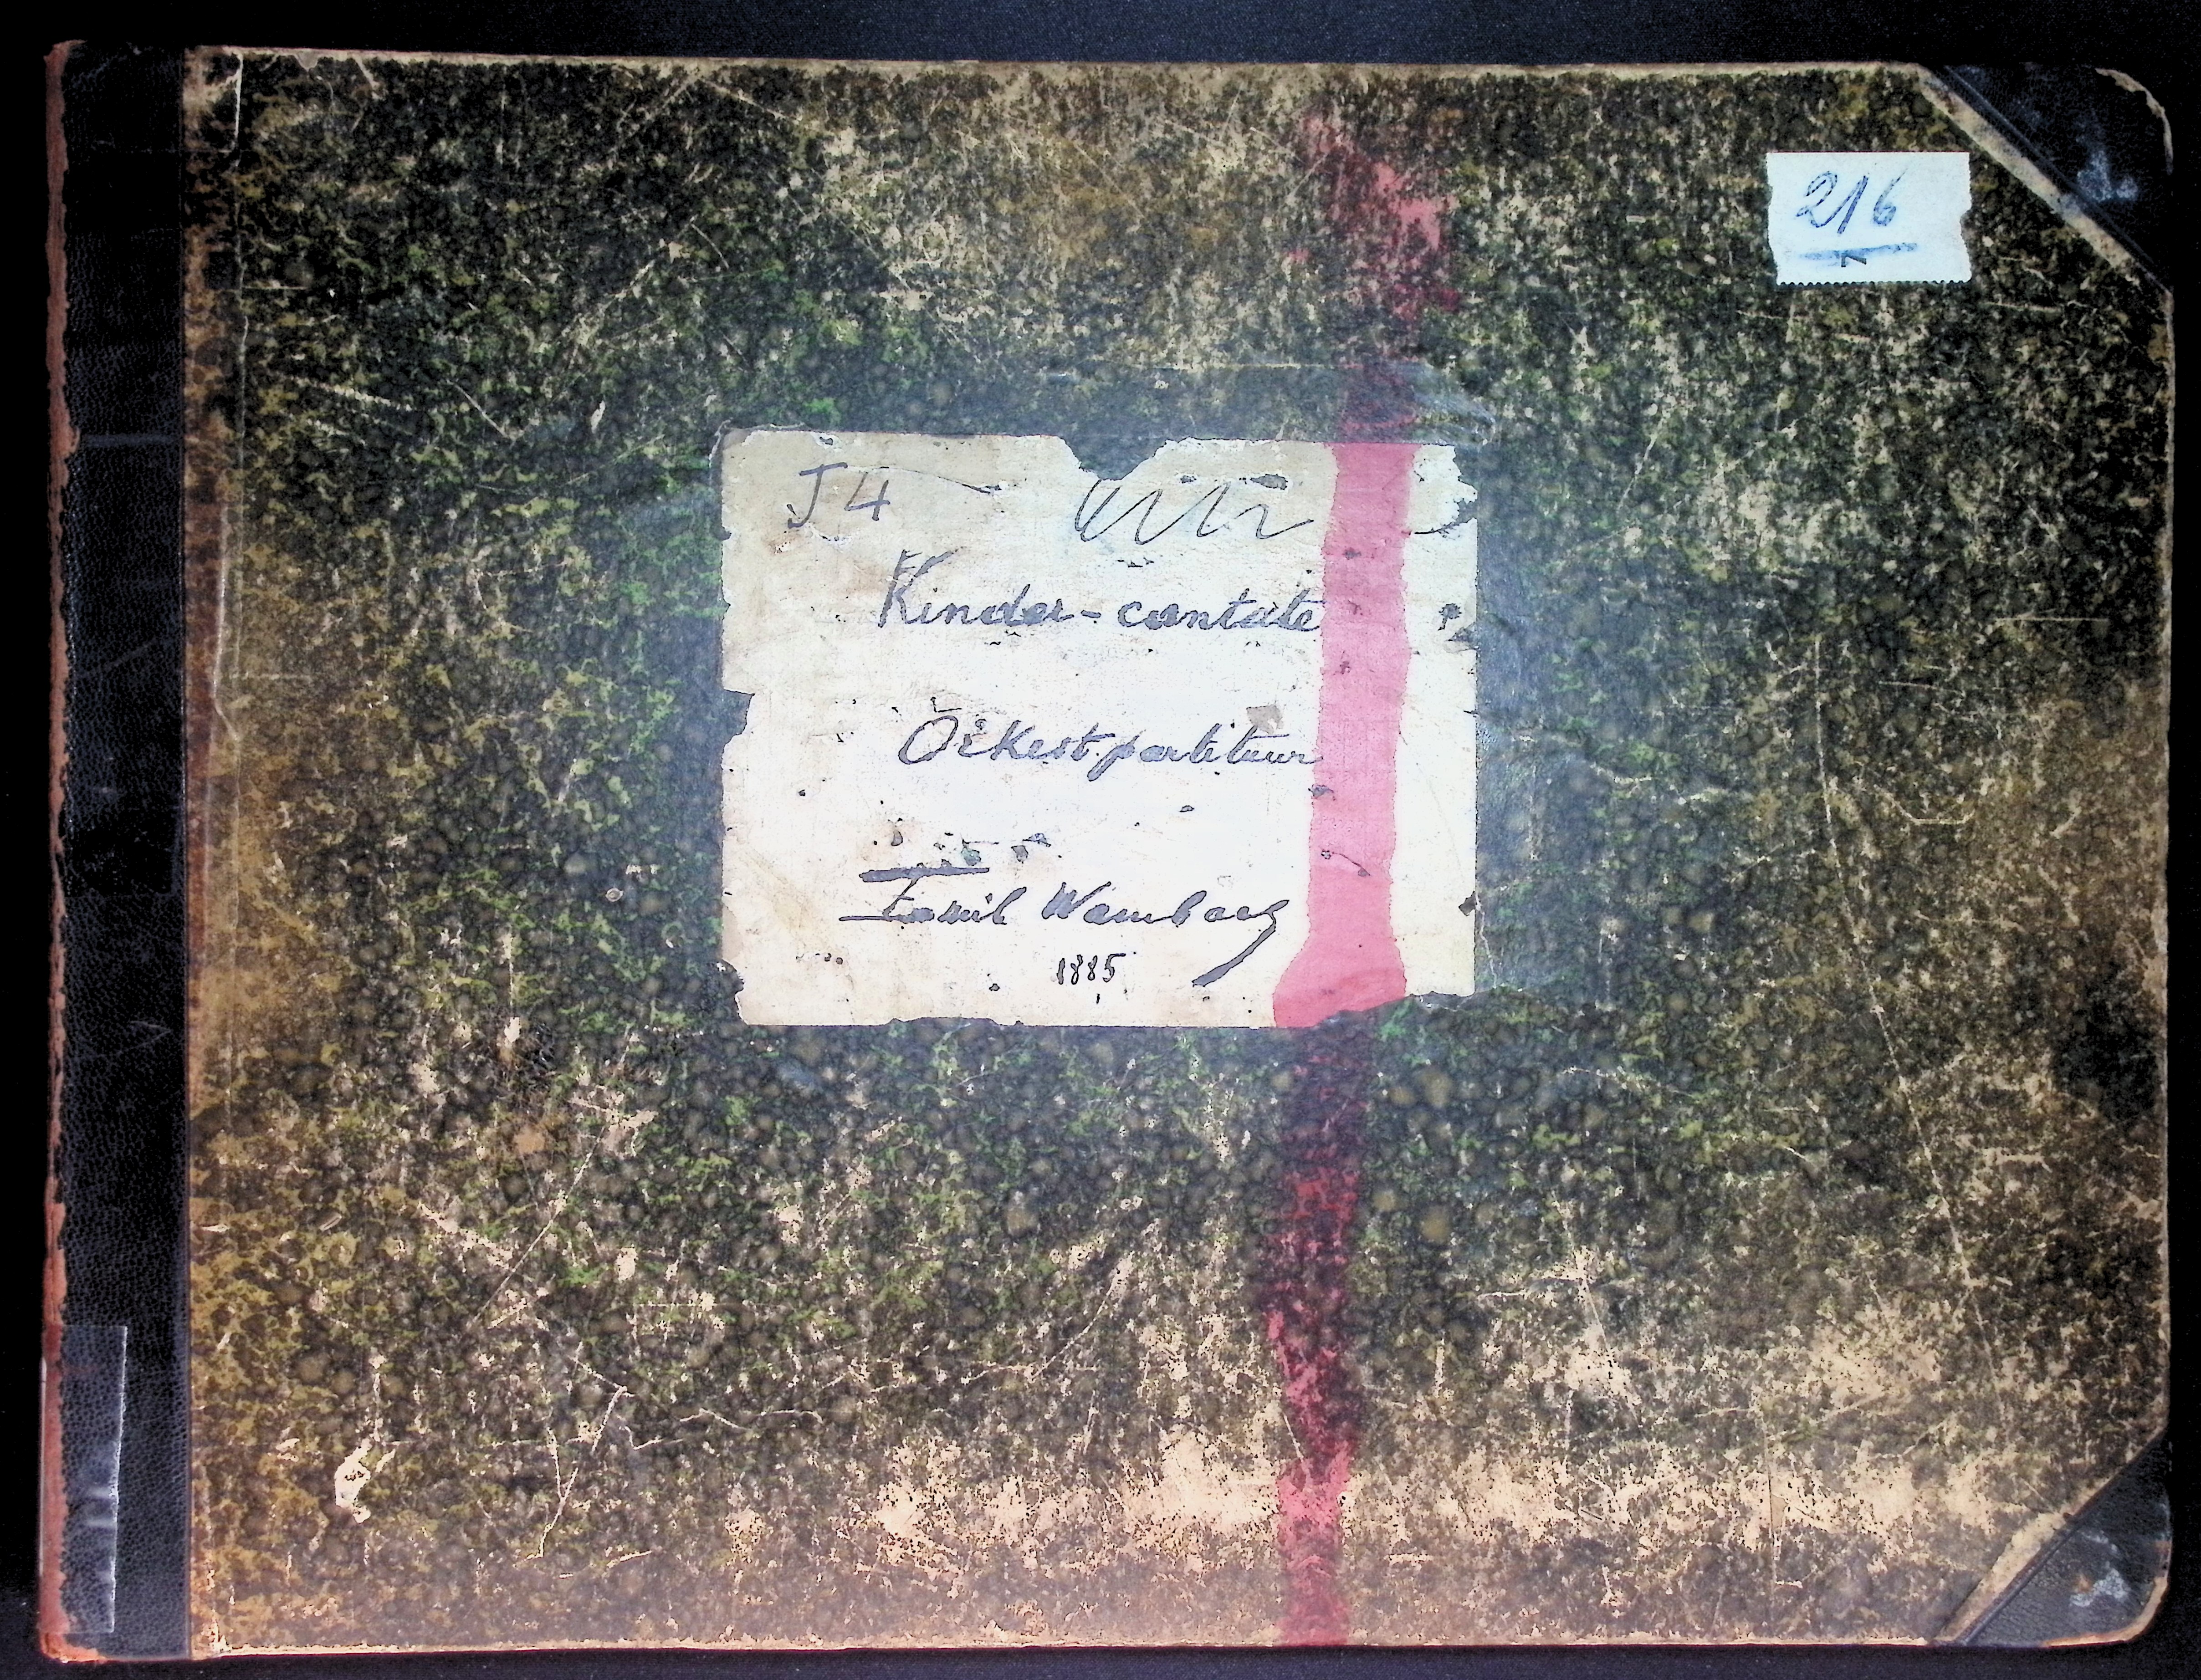 216
7
J4
Kinder-cantate
Orkestpartituur
Emil Wambach
1885